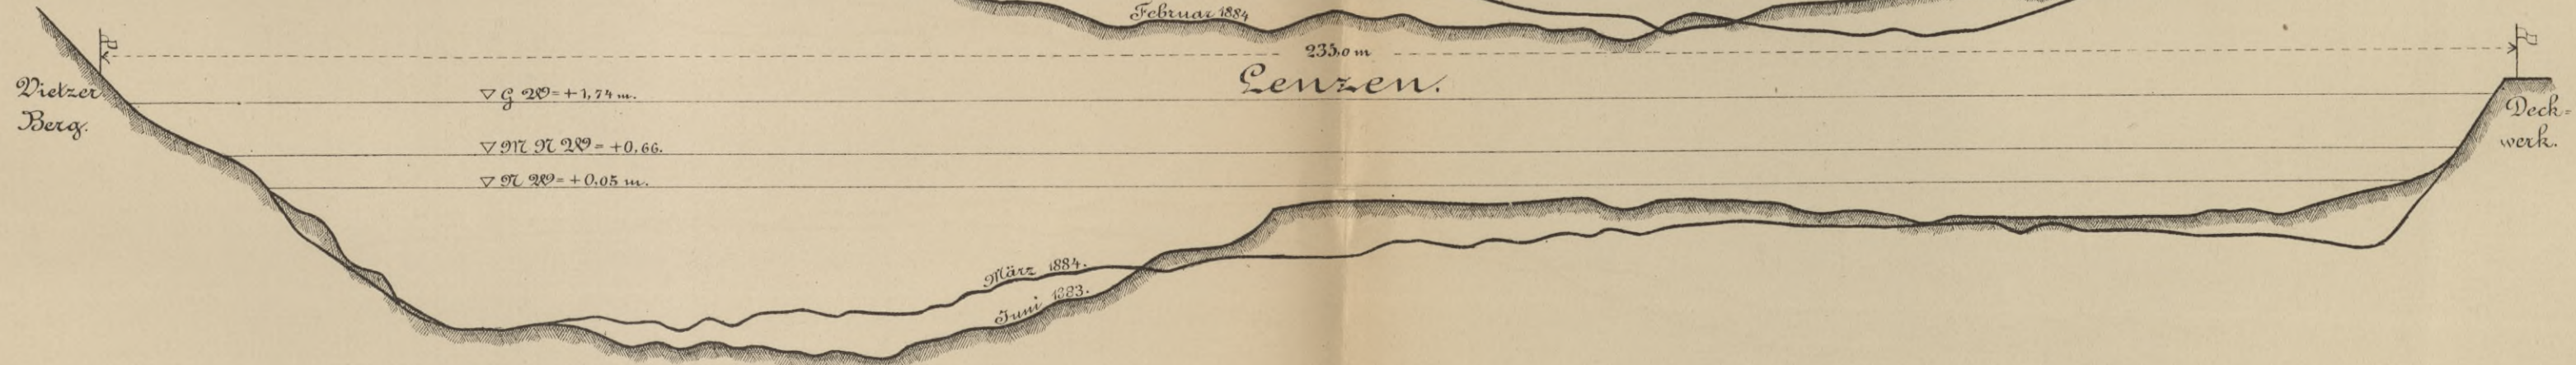 Februar 1884
235,0 m
Lenzen.
Vietzer
Berg.
▽ G W = + 1,74 m.
▽ M N W = + 0,66.
▽ N W = + 0,05 m.
Deck=
werk.
März 1884.
Juni 1883.